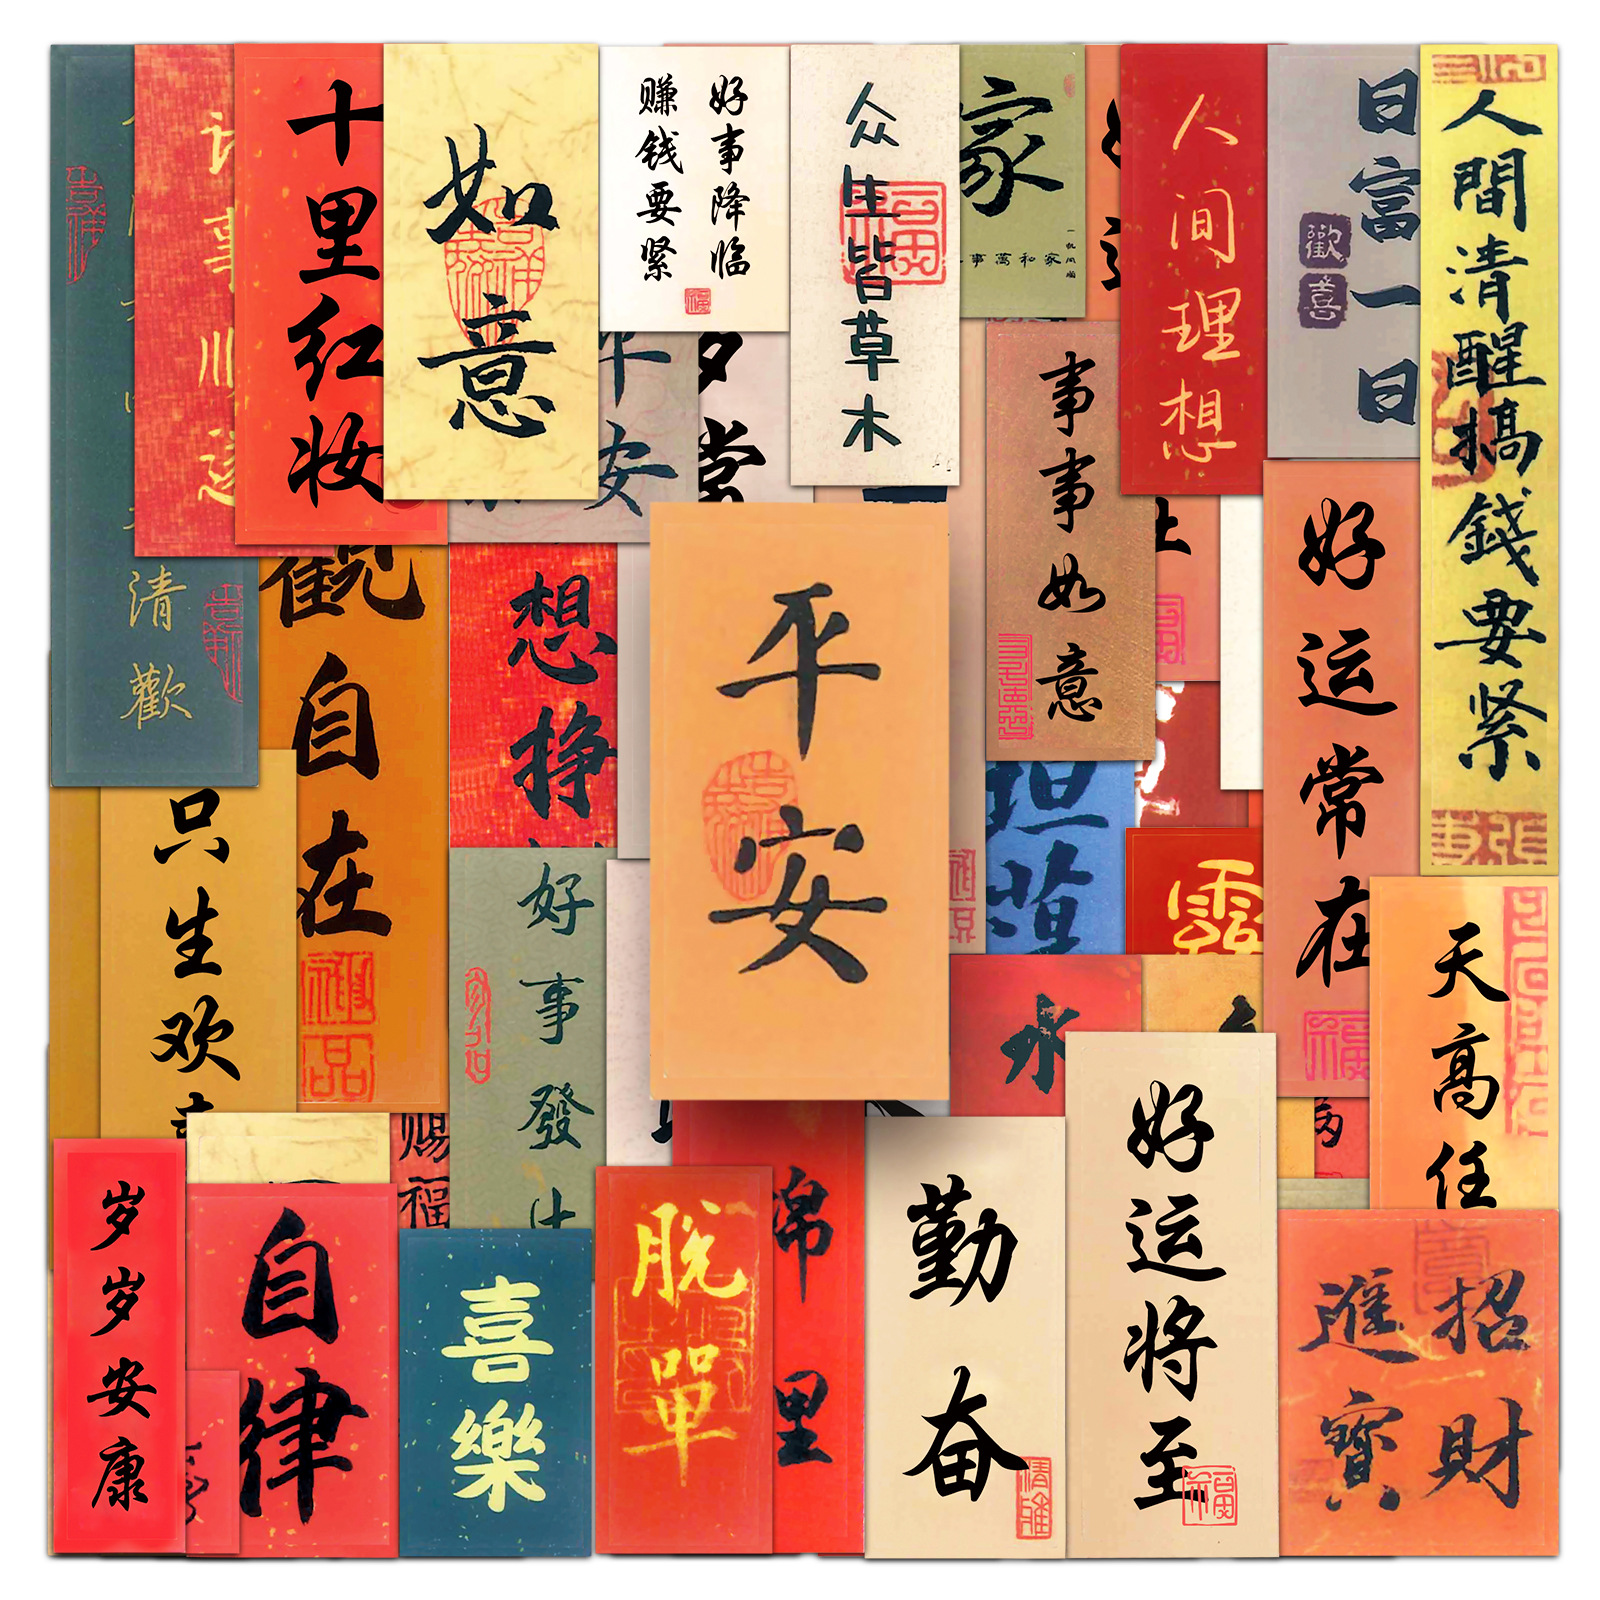 清歡
事順
十里红妆
如意
好事降临
赚钱要紧
众生皆草木
家
家和萬事
人间理想
日富一日
歡喜
人間清醒搞錢要紧
平安
常
事事如意
上
好运常在
觀自在
想挣
只生欢
好事發生
平安
坦蕩
露
水
天高任
赐福
岁岁安康
自律
喜樂
脱單
锦里
勤奋
好运将至
招財
進寶